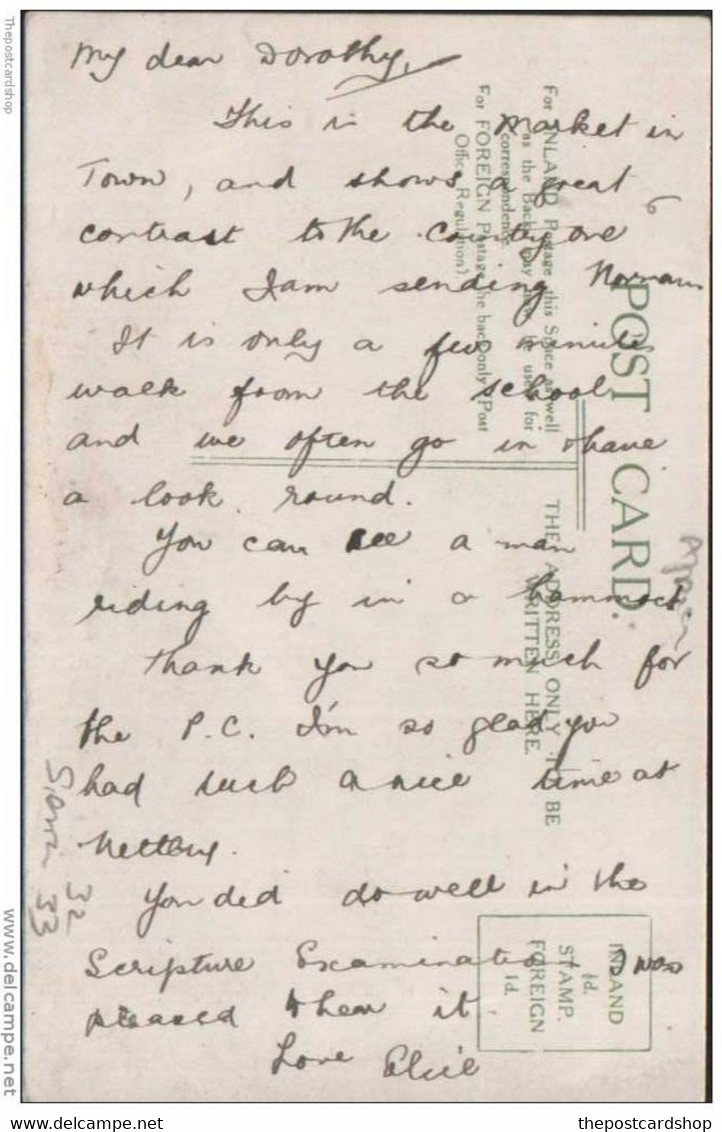 My dear Dorothy,
This is the Market in
Town, and shows a great
contrast to the country one
which I am sending Norman
It is only a few minutes
walk from the school
and we often go in & have
a look round.
You can see a man
riding by in a hammock
Thank you so much for
the P.C. I'm so glad you
had such a nice time at
Netley.
You did do well in the
Scripture Examination I was
pleased to hear it.
Love Elsie
POST CARD
For INLAND Postage this Space as well
as the Back may now be used for
correspondence.
For FOREIGN Postage the back only. (Post
Office Regulation)
THE ADDRESS ONLY TO BE
WRITTEN HERE.
INLAND
½d.
STAMP.
FOREIGN
1d.
6
Africa
Sierra
32
33
Thepostcardshop
www.delcampe.net
my.delcampe.com
thepostcardshop